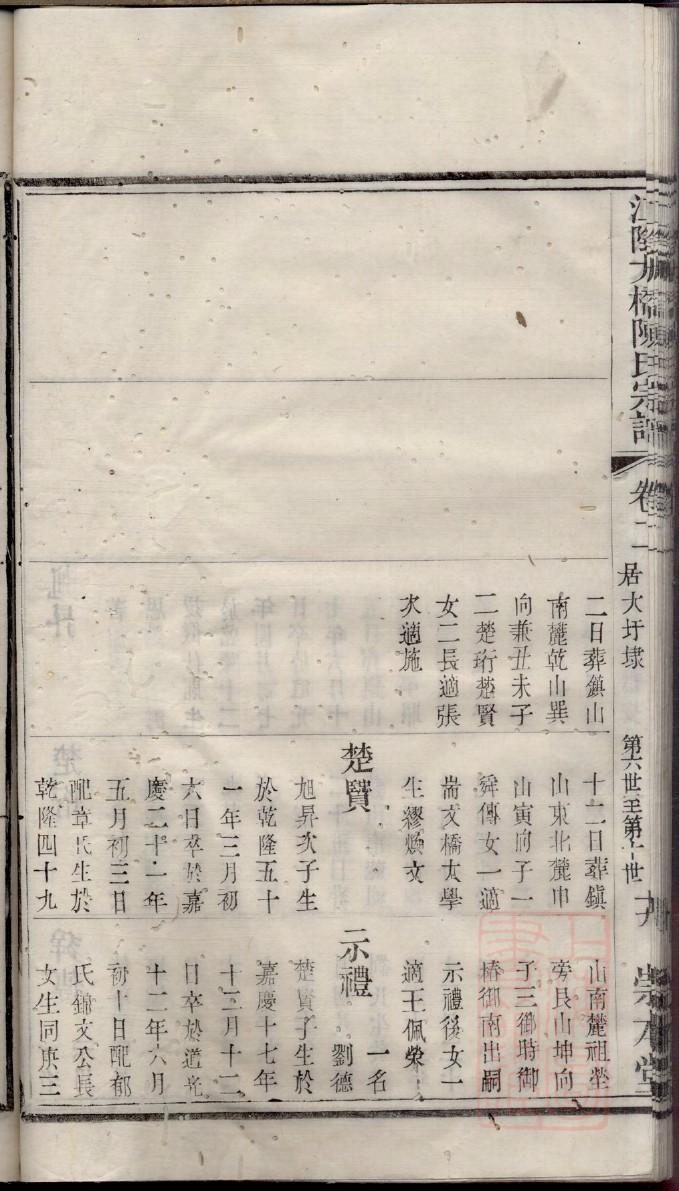 江陰方橋陳氏宗譜
卷二
居大圩埭
第六世至第十世
崇本堂
二日葬鎮山
南麓乾山巽
向兼丑未子
二楚珩楚賢
女二長適張
次適施
十二日葬鎮
山東北麓申
山寅向子一
舜傳女一適
耑文橋太學
生繆煥文
楚賢
旭昇次子生
於乾隆五十
一年三月初
六日卒於嘉
慶二十一年
五月初三日
配章氏生於
乾隆四十九
山南麓祖塋
旁艮山坤向
子三御時御
椿御南出嗣
示禮後女一
適王佩榮
示禮
一名
劉德
楚賢子生於
嘉慶十七年
十二月十二
日卒於道光
十二年六月
初十日配郁
氏錦文公長
女生同庚三